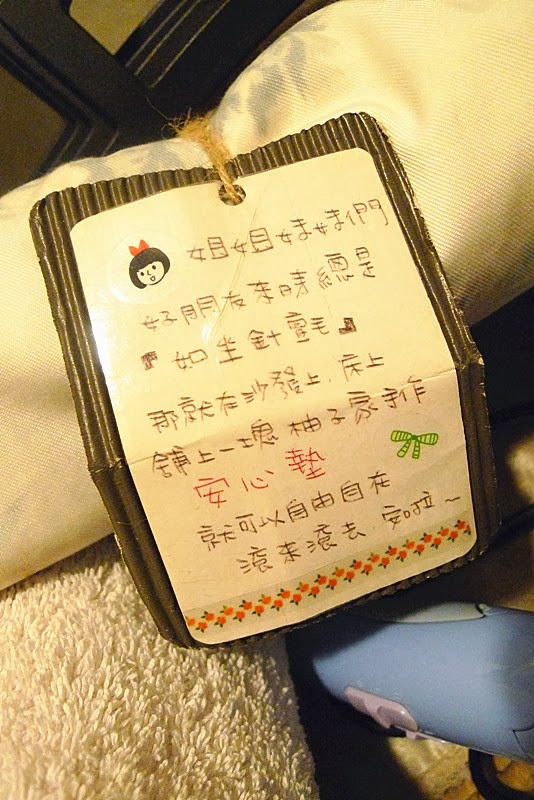 姐姐妹妹們
好朋友來時總是
『如坐針氈』
那就在沙發上、床上
舖上一塊柚子家手作
安心墊
就可以自由自在
滾來滾去 安啦~